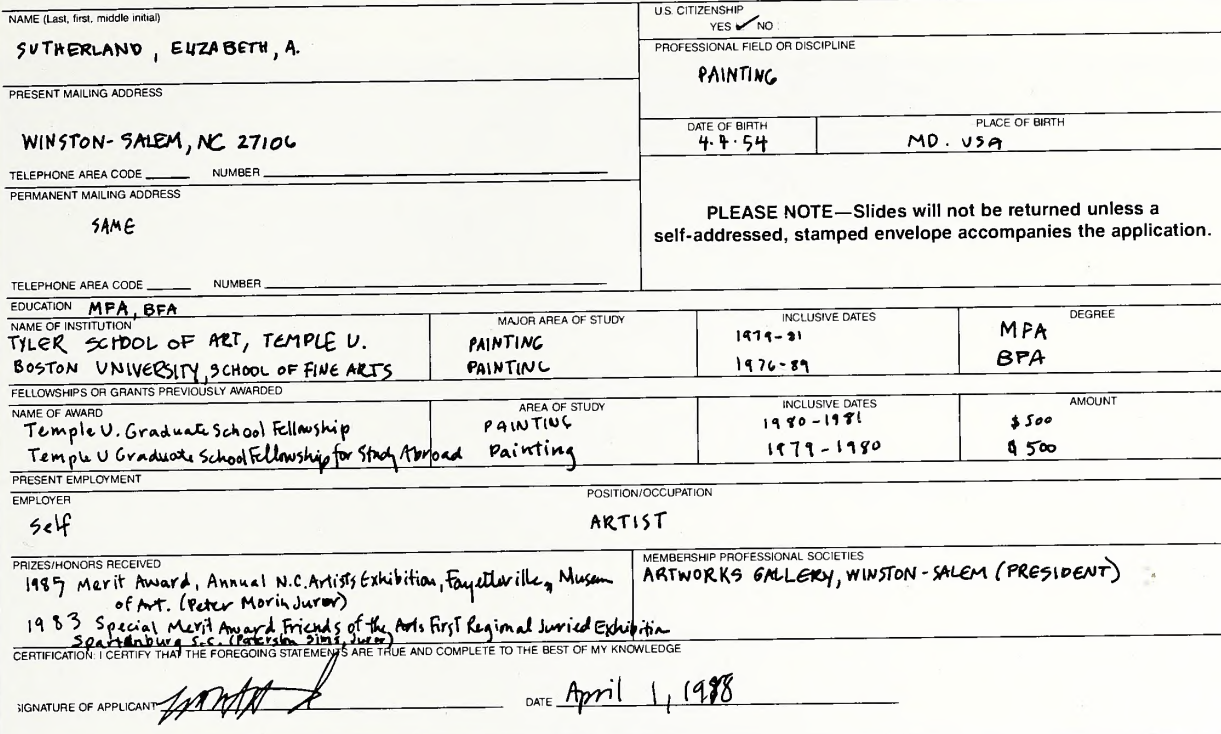 NAME (Last, first, middle initial)
SUTHERLAND, ELIZABETH, A.
U.S. CITIZENSHIP
YES ✓ NO
PROFESSIONAL FIELD OR DISCIPLINE
PAINTING
PRESENT MAILING ADDRESS
WINSTON-SALEM, NC 27106
TELEPHONE AREA CODE ______ NUMBER ______
DATE OF BIRTH
4.4.54
PLACE OF BIRTH
MD. USA
PERMANENT MAILING ADDRESS
SAME
TELEPHONE AREA CODE ______ NUMBER ______
PLEASE NOTE—Slides will not be returned unless a
self-addressed, stamped envelope accompanies the application.
EDUCATION MFA, BFA
NAME OF INSTITUTION MAJOR AREA OF STUDY INCLUSIVE DATES DEGREE
TYLER SCHOOL OF ART, TEMPLE U. PAINTING 1979-81 MFA
BOSTON UNIVERSITY, SCHOOL OF FINE ARTS PAINTING 1976-89 BFA
FELLOWSHIPS OR GRANTS PREVIOUSLY AWARDED
NAME OF AWARD AREA OF STUDY INCLUSIVE DATES AMOUNT
Temple U. Graduate School Fellowship PAINTING 1980-1981 $500
Temple U Graduate School Fellowship for Study Abroad Painting 1979-1980 $500
PRESENT EMPLOYMENT
EMPLOYER POSITION/OCCUPATION
Self ARTIST
PRIZES/HONORS RECEIVED
1987 Merit Award, Annual N.C. Artists Exhibition, Fayetteville, Museum
of Art. (Peter Morin Juror)
1983 Special Merit Award Friends of the Arts First Regional Juried Exhibition
Spartanburg S.C. (Paterson Sims, Juror)
MEMBERSHIP PROFESSIONAL SOCIETIES
ARTWORKS GALLERY, WINSTON-SALEM (PRESIDENT)
CERTIFICATION: I CERTIFY THAT THE FOREGOING STATEMENTS ARE TRUE AND COMPLETE TO THE BEST OF MY KNOWLEDGE
SIGNATURE OF APPLICANT DATE April 1, 1988